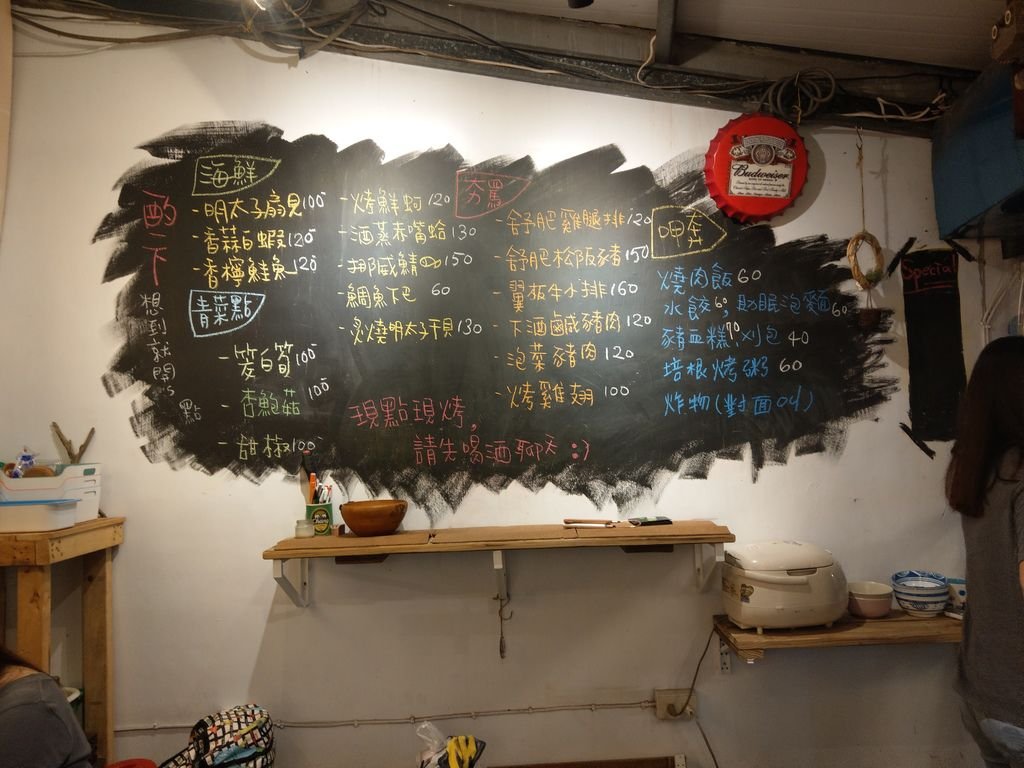 酌一下
想到就開
點
海鮮
-明太子扇貝100
-香蒜白蝦120
-香檸鮭魚120
青菜點
-筊白筍100
-杏鮑菇100
-甜椒100
-烤鮮蚵120
-酒蒸赤嘴蛤130
-挪威鯖150
-鯛魚下巴 60
-炙燒明太子干貝130
夯罵
-舒肥雞腿排120
-舒肥松阪豬150
-翼板牛小排160
-下酒鹹豬肉120
-泡菜豬肉120
-烤雞翅 100
呷奔
燒肉飯60
水餃60, 助眠泡麵60
豬血糕90 刈包 40
培根烤粥 60
炸物(對面叫)
現點現烤,
請先喝酒聊天 :)
Budweiser
Special
Chang